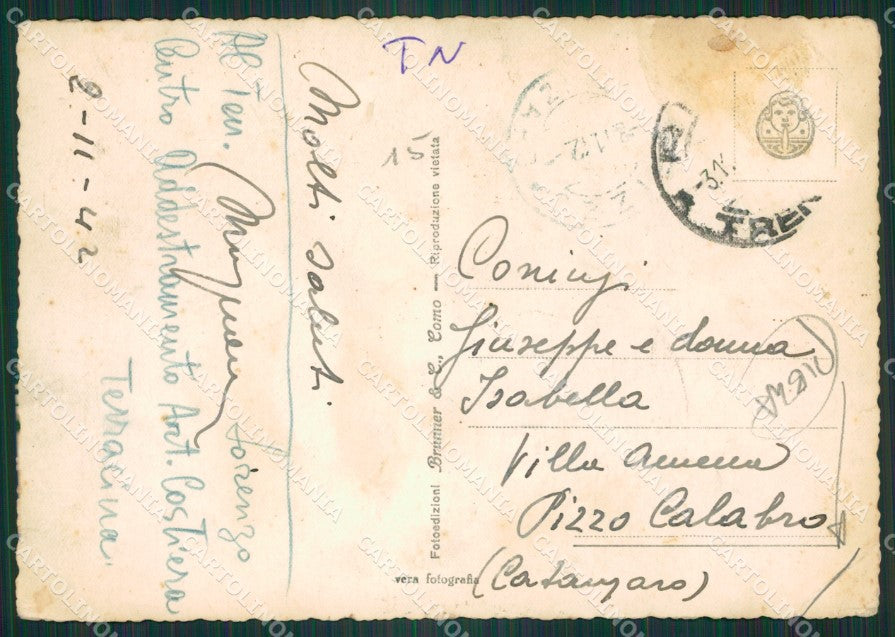 TN
15
Molti saluti.
2-11-42
Al Ten.
Lorenzo
Centro Addestramento Art. Costiera
Terracina.
Fotoedizioni Brunner & C., Como — Riproduzione vietata
vera fotografia
-3.1
TREN
Coniugi
Giuseppe e donna
Isabella
Villa Amena
Pizzo Calabro
(Catanzaro)
CARTOLINOMANIA